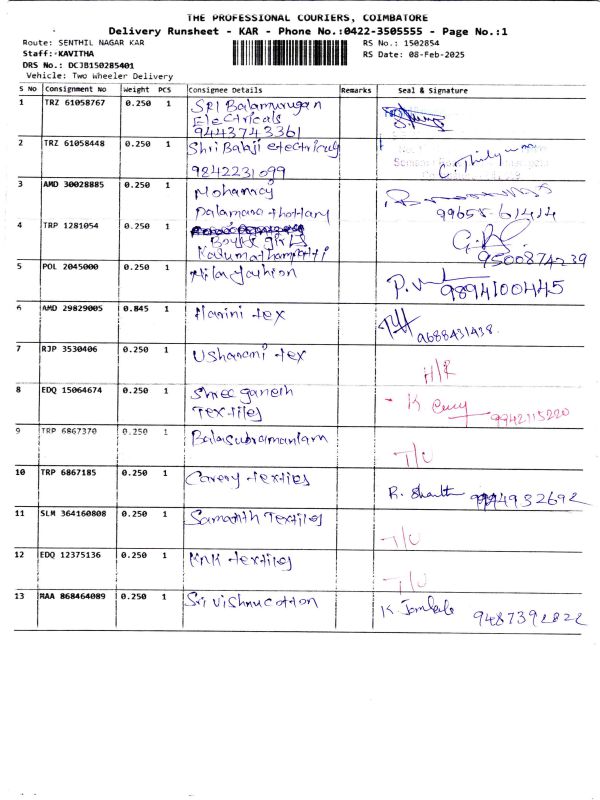 THE PROFESSIONAL COURIERS, COIMBATORE
Delivery Runsheet - KAR - Phone No.:0422-3505555 - Page No.:1
Route: SENTHIL NAGAR KAR
RS No.: 1502854
Staff: KAVITHA
RS Date: 08-Feb-2025
DRS No.: DCJB150285401
Vehicle: Two Wheeler Delivery
S No Consignment No Weight PCS Consignee Details Remarks Seal & Signature
1 TRZ 61058767 0.250 1 SRI Balamurugan
Electricals
9443743361
2 TRZ 61058448 0.250 1 Shri Balaji electricals
9842231099
3 AMD 30028885 0.250 1 Mohanraj
Palamarathottam
99655-61414
4 TRP 1281054 0.250 1
Boys & girls
Kadumathampatti
9500874239
5 POL 2045000 0.250 1 Mila fashion
P.V 9894100445
6 AMD 29829005 0.845 1 Harini tex
9688431438
7 RJP 3530406 0.250 1 Usharani tex
H/R
8 EDQ 15064674 0.250 1 Shree ganesh
Textiles
K
9942115220
9 TRP 6867370 0.250 1 Balasubramaniam
T/U
10 TRP 6867185 0.250 1 Cavery textiles
R. 9944932692
11 SLM 364160808 0.250 1 Samarth Textiles
T/U
12 EDQ 12375136 0.250 1 KNK textiles
T/U
13 MAA 868464089 0.250 1 Sri vishnu cotton
K 9487392822